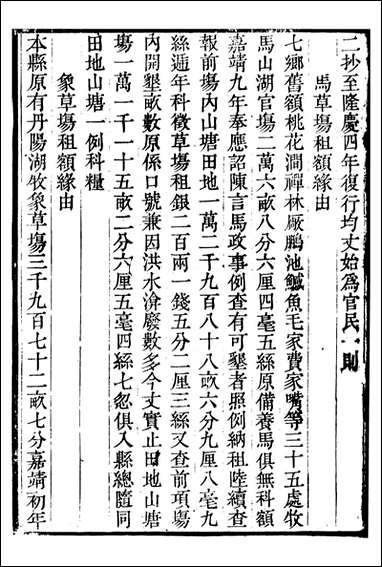 二抄至隆慶四年復行均丈始爲官民一則
馬草塲租額緣由
七鄉舊額桃花澗禪林厰鵬池鰄魚毛家費家嘴等三十五處牧
馬山湖官塲二萬六畝八分六厘四毫五絲原備養馬俱無科額
嘉靖九年奉應詔陳言馬政事例查有可墾者照例納租陸續查
報前塲内山塘田地一萬二千九百八十八畝六分九厘八毫九
絲遞年科徵草塲租銀二百兩一錢五分二厘三絲又查前項塲
內開墾畝數原係口號兼因洪水渰廢數多今丈實止田地山塘
塲一萬一千一十五畝二分六厘五毫四絲七忽俱入縣總隨同
田地山塘一例科糧
象草塲租額緣由
本縣原有丹陽湖牧象草塲三千九百七十二畝七分嘉靖初年